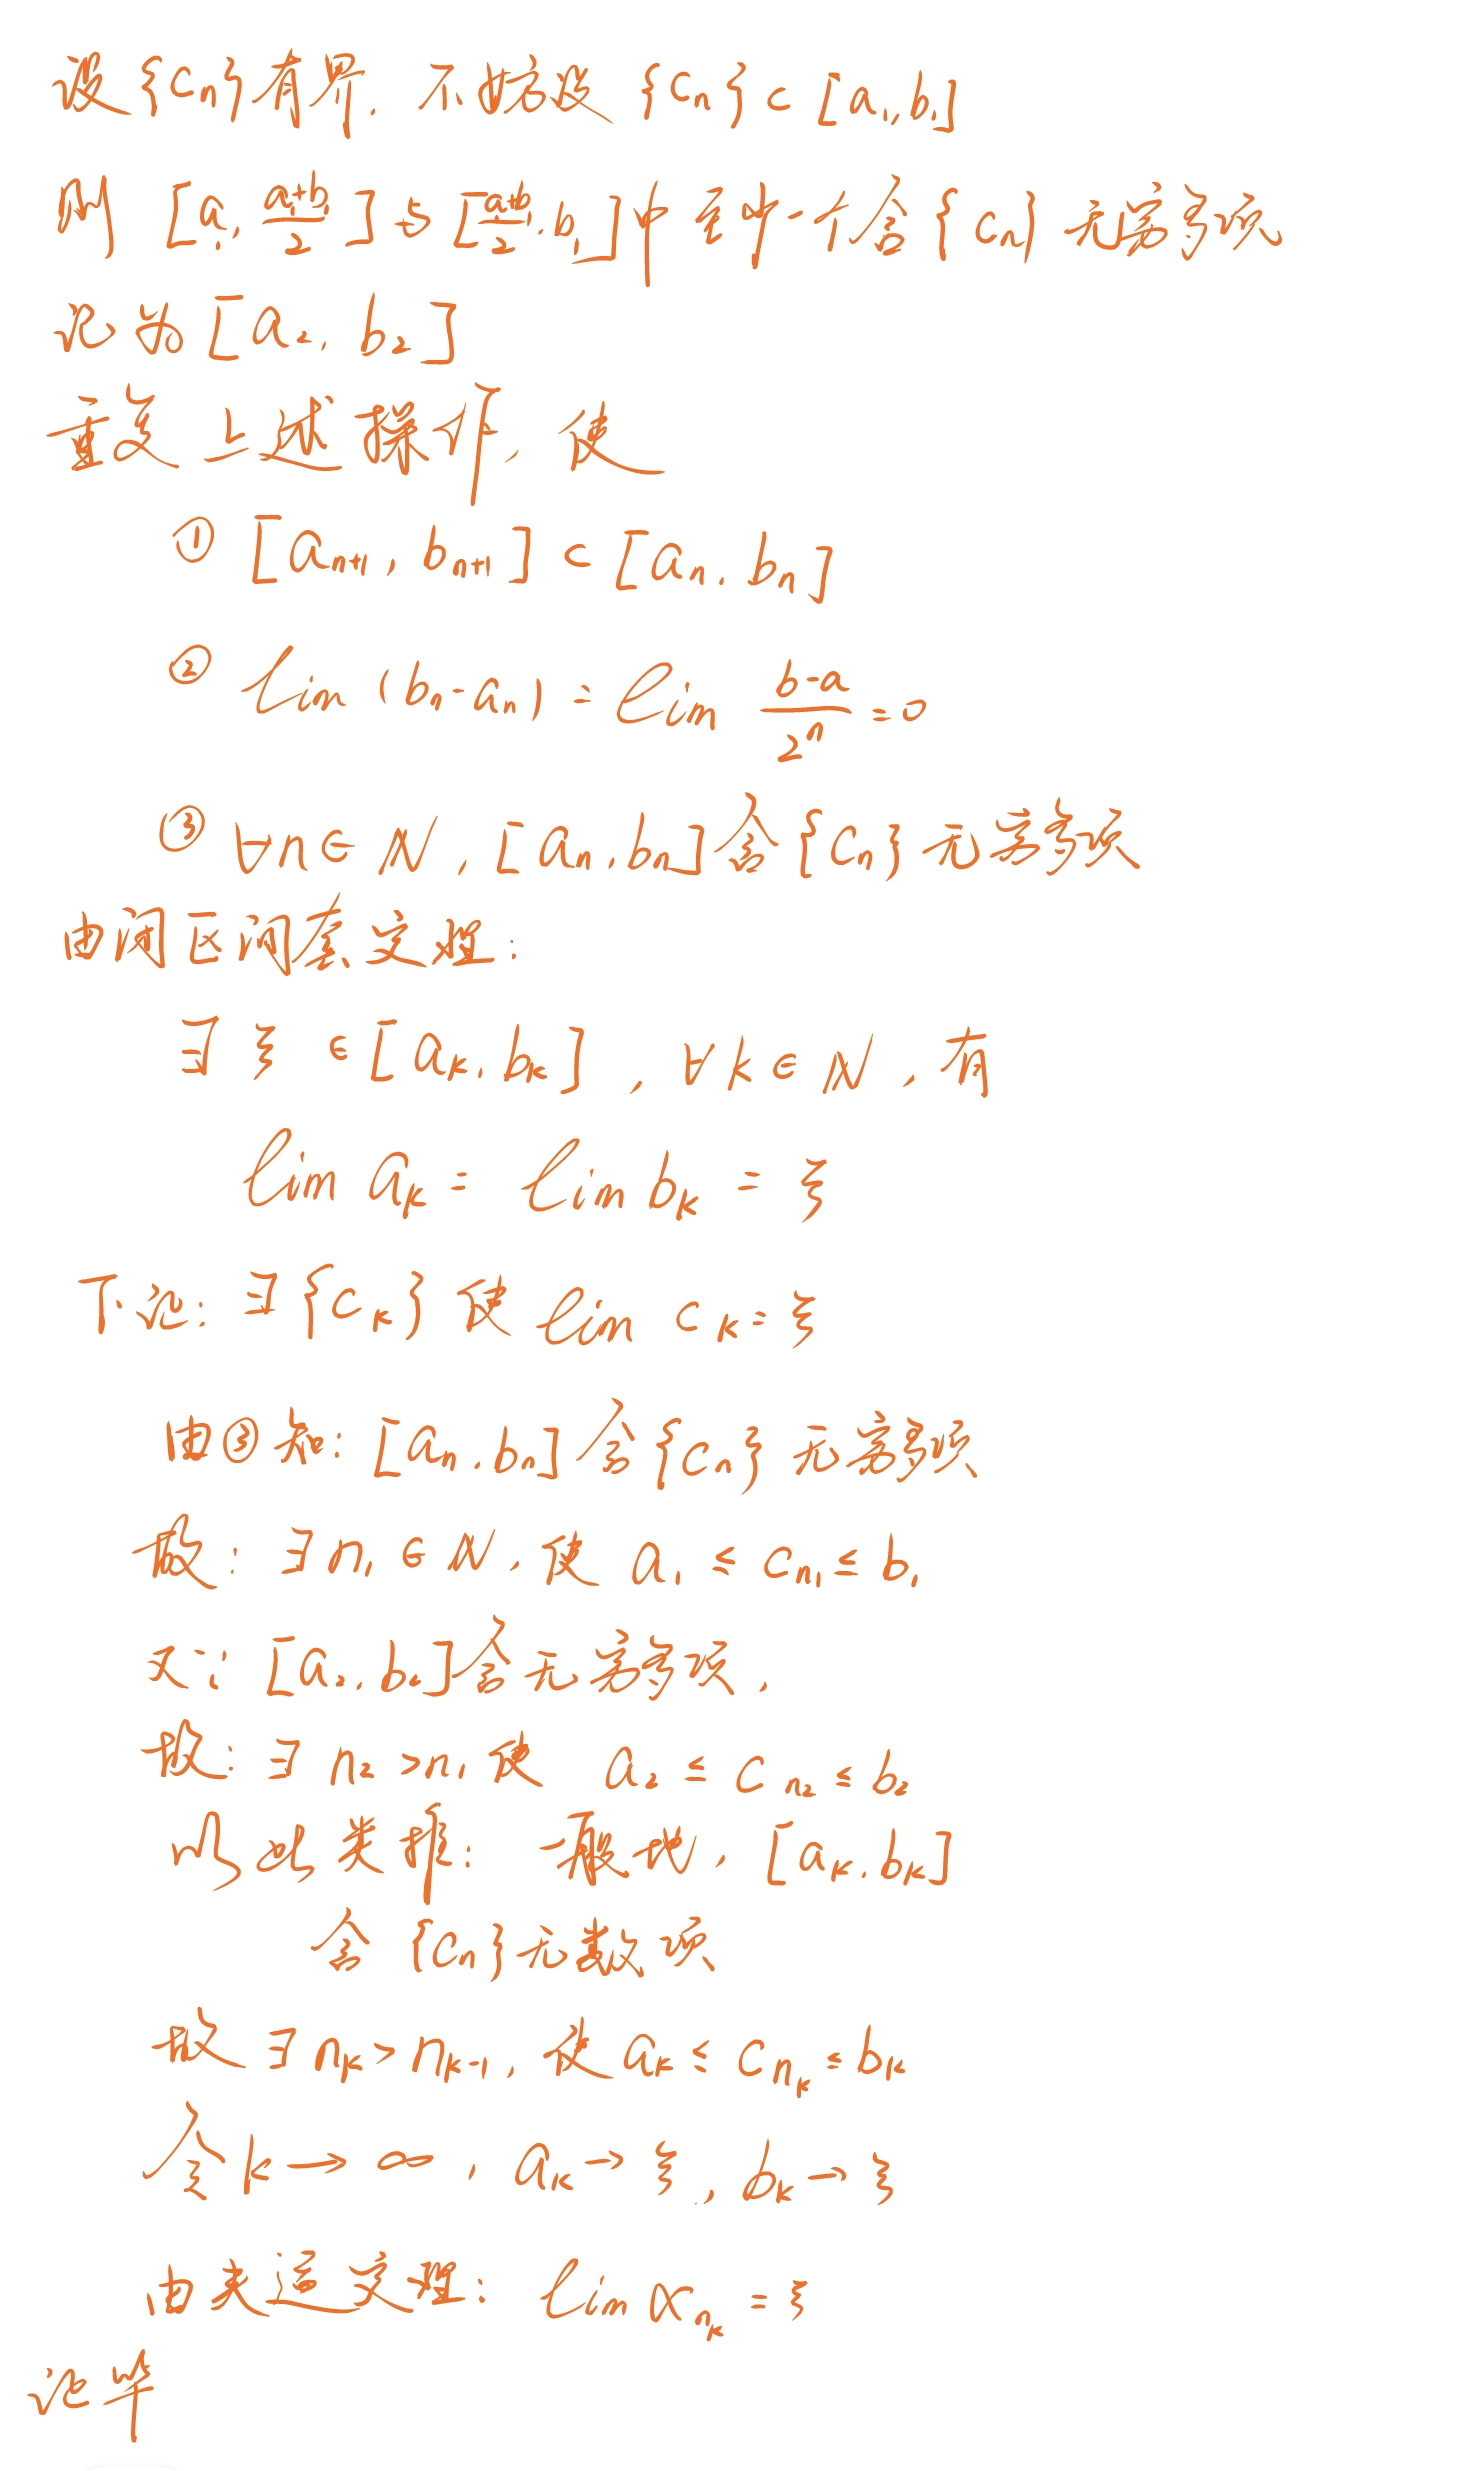 设{Cn}有界,不妨设{Cn}⊂[a₁,b₁]
则[a₁,(a₁+b₁)/2]与[(a₁+b₁)/2,b₁]中至少一个含{Cn}无穷多项
记为[a₂,b₂]
重复上述操作,使
① [aₙ₊₁,bₙ₊₁]⊂[aₙ,bₙ]
② lim(bₙ-aₙ)=lim (b-a)/2ⁿ=0
③ ∀n∈N,[aₙ,bₙ]含{Cn}无穷多项
由闭区间套定理:
∃ξ∈[aₖ,bₖ],∀k∈N,有
lim aₖ=lim bₖ=ξ
下证:∃{Cₖ}使lim Cₖ=ξ
由③知:[aₙ,bₙ]含{Cn}无穷多项
故:∃n₁∈N,使a₁≤Cₙ₁≤b₁
又∵[a₂,b₂]含无穷多项,
故:∃n₂>n₁使 a₂≤Cₙ₂≤b₂
以此类推:一般地,[aₖ,bₖ]
含{Cn}无数项
故∃nₖ>nₖ₋₁,使aₖ≤Cₙₖ≤bₖ
令k→∞,aₖ→ξ,bₖ→ξ
由夹逼定理:lim xₙₖ=ξ
证毕